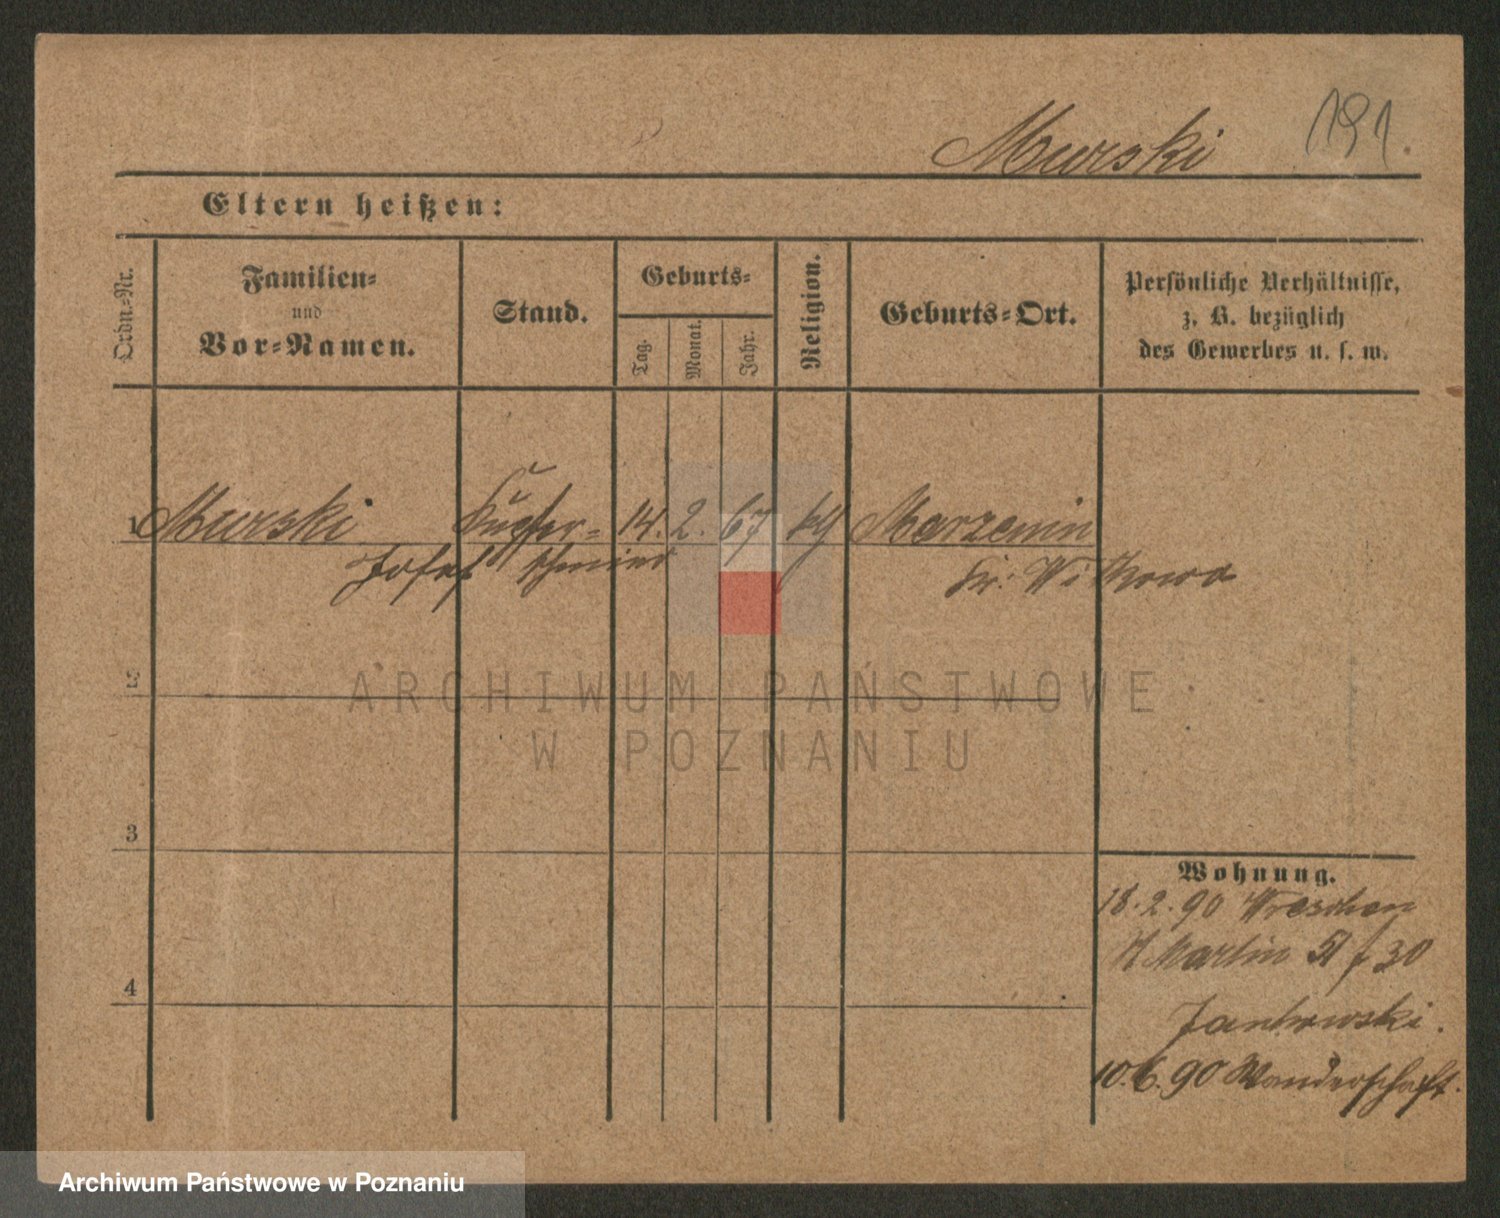 Murski
191.
Eltern heißen:
Ordn.-Nr.
Familien-
und
Vor-Namen.
Stand.
Geburts-
Tag.
Monat.
Jahr.
Religion.
Geburts-Ort.
Persönliche Verhältnisse,
z. B. bezüglich
des Gewerbes u. s. w.
1 Murski Kupfer- 14. 2. 67 Marzenin
Josef schmied Kr. Witkowo
2
ARCHIWUM PAŃSTWOWE
W POZNANIU
3
Wohnung.
18.2.90 Wreschen
Martin 51 30
Jankowski.
4
10.6.90 Wanderschaft.
Archiwum Państwowe w Poznaniu